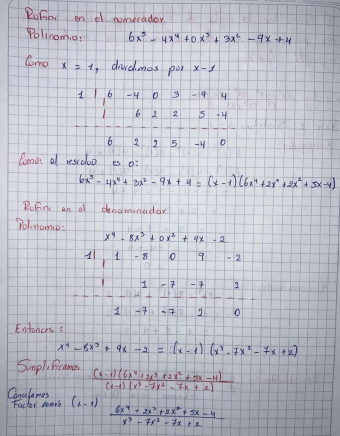 Rufini en el numerador
Polinomio: 6x⁵ - 4x⁴ + 0x³ + 3x² - 9x + 4
Como x = 1, dividimos por x-1
1 | 6 -4 0 3 -9 4
6 2 2 5 -4
6 2 2 5 -4 0
Como el residuo es 0:
6x⁵ - 4x⁴ + 3x² - 9x + 4 = (x-1)(6x⁴ + 2x³ + 2x² + 5x - 4)
Rufini en el denominador
Polinomio:
x⁴ - 8x³ + 0x² + 9x - 2
1 | 1 -8 0 9 -2
1 -7 -7 2
1 -7 -7 2 0
Entonces:
x⁴ - 8x³ + 9x - 2 = (x-1)(x³ - 7x² - 7x + 2)
Simplificamos (x-1)(6x⁴ + 2x³ + 2x² + 5x - 4)
(x-1)(x³ - 7x² - 7x + 2)
Cancelamos
Factor común (x-1) 6x⁴ + 2x³ + 2x² + 5x - 4
x³ - 7x² - 7x + 2